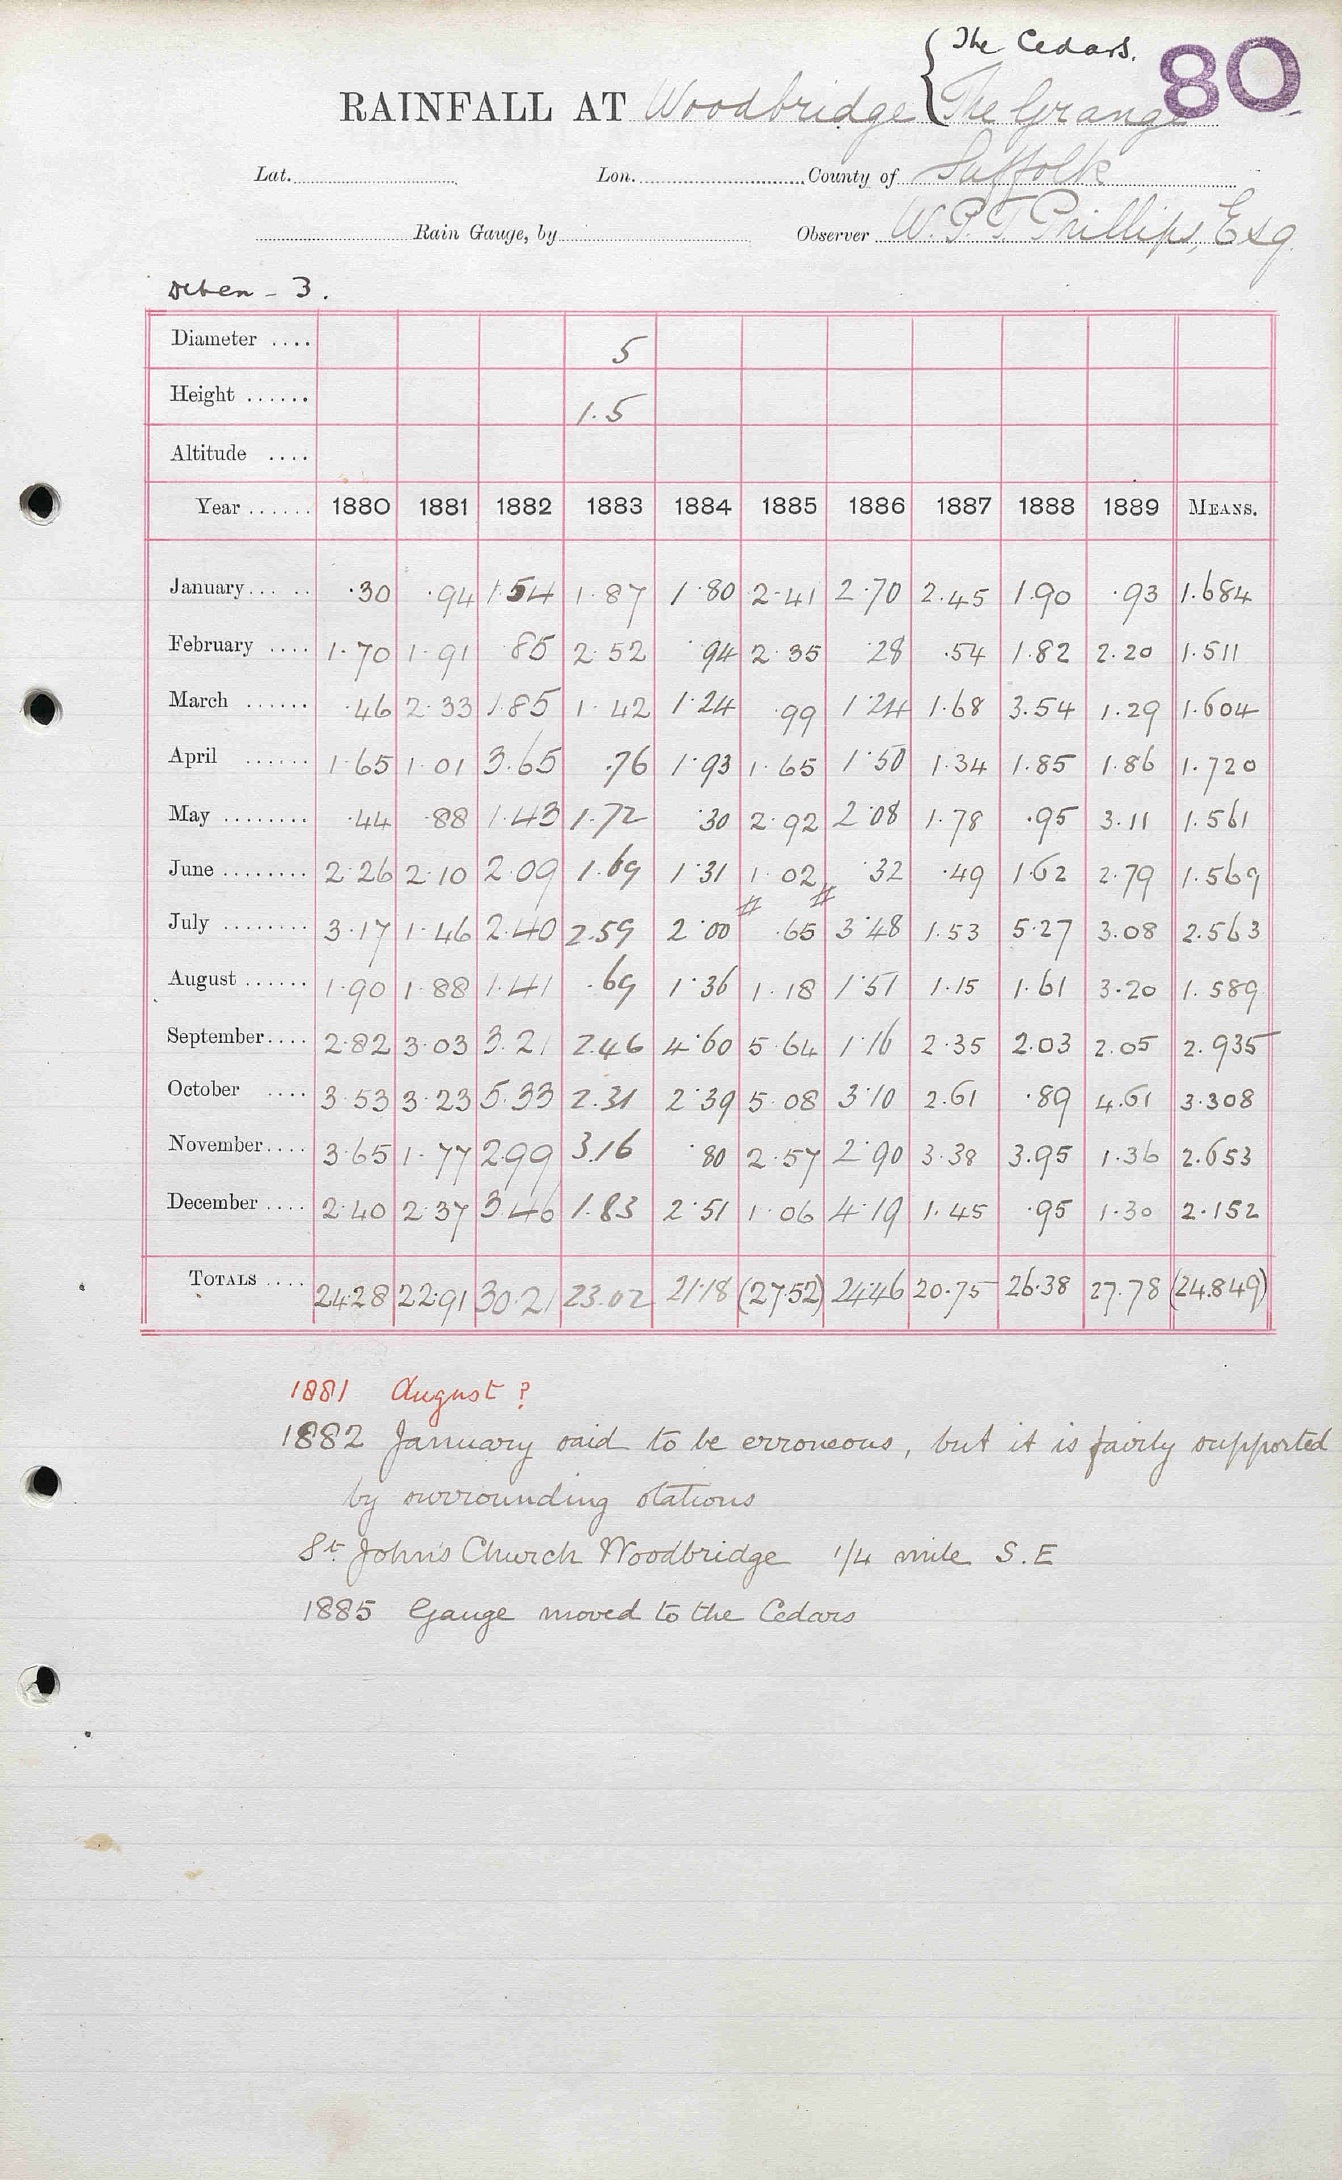 The Cedars.
80
RAINFALL AT Woodbridge { The Grange
Lat. Lon. County of Suffolk
Rain Gauge, by Observer W. P. T. Phillips, Esq.
Deben - 3.
Diameter .... 5
Height ...... 1.5
Altitude ....
Year ...... 1880 1881 1882 1883 1884 1885 1886 1887 1888 1889 MEANS.
January ..... ·30 ·94 1·54 1·87 1·80 2·41 2·70 2·45 1·90 ·93 1·684
February .... 1·70 1·91 ·85 2·52 ·94 2·35 ·28 ·54 1·82 2·20 1·511
March ...... ·46 2·33 1·85 1·42 1·24 ·99 1·24 1·68 3·54 1·29 1·604
April ...... 1·65 1·01 3·65 ·76 1·93 1·65 1·50 1·34 1·85 1·86 1·720
May ........ ·44 ·88 1·43 1·72 ·30 2·92 2·08 1·78 ·95 3·11 1·561
June ........ 2·26 2·10 2·09 1·69 1·31 1·02 ·32 ·49 1·62 2·79 1·569
July ........ 3·17 1·46 2·40 2·59 2·00 # ·65 # 3·48 1·53 5·27 3·08 2·563
August ...... 1·90 1·88 1·41 ·69 1·36 1·18 1·51 1·15 1·61 3·20 1·589
September .... 2·82 3·03 3·21 2·46 4·60 5·64 1·16 2·35 2·03 2·05 2·935
October .... 3·53 3·23 5·33 2·31 2·39 5·08 3·10 2·61 ·89 4·61 3·308
November .... 3·65 1·77 2·99 3·16 ·80 2·57 2·90 3·38 3·95 1·36 2·653
December .... 2·40 2·37 3·46 1·83 2·51 1·06 4·19 1·45 ·95 1·30 2·152
TOTALS .... 24·28 22·91 30·21 23·02 21·18 (27·52) 24·46 20·75 26·38 27·78 (24·849)
1881 August ?
1882 January said to be erroneous, but it is fairly supported
by surrounding stations
St. John's Church Woodbridge 1/4 mile S.E
1885 Gauge moved to the Cedars